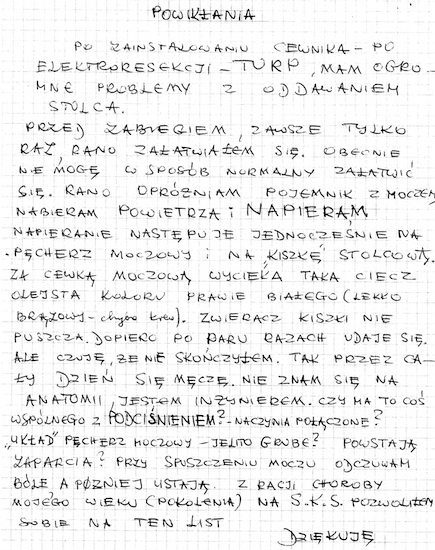 POWIKŁANIA
PO ZAINSTALOWANIU CEWNIKA - PO
ELEKTRORESEKCJI - TURP, MAM OGRO-
MNE PROBLEMY Z ODDAWANIEM
STOLCA.
PRZED ZABIEGIEM, ZAWSZE TYLKO
RAZ, RANO ZAŁATWIAŁEM SIĘ. OBECNIE
NIE MOGĘ W SPOSÓB NORMALNY ZAŁATWIĆ
SIĘ. RANO OPRÓŻNIAM POJEMNIK Z MOCZEM,
NABIERAM POWIETRZA i NAPIERAM,
NAPIERANIE NASTĘPUJE JEDNOCZEŚNIE NA
PĘCHERZ MOCZOWY i NA „KISZKĘ" STOLCOWĄ.
ZA CEWKĄ MOCZOWĄ WYCIEKA TAKA CIECZ
OLEJSTA KOLORU PRAWIE BIAŁEGO (LEKKO
BRĄZOWY - chyba krew). ZWIERACZ KISZKI NIE
PUSZCZA. DOPIERO PO PARU RAZACH UDAJE SIĘ.
ALE CZUJĘ, ŻE NIE SKOŃCZYŁEM. TAK PRZEZ CA-
ŁY DZIEŃ SIĘ MĘCZĘ. NIE ZNAM SIĘ NA
ANATOMII, JESTEM INŻYNIEREM. CZY MA TO COŚ
WSPÓLNEGO Z PODCIŚNIENIEM? - NACZYNIA POŁĄCZONE?
„UKŁAD" PĘCHERZ MOCZOWY - JELITO GRUBE? POWSTAJĄ
ZAPARCIA? PRZY SPUSZCZENIU MOCZU ODCZUWAM
BÓLE A PÓŹNIEJ USTAJĄ. Z RACJI CHOROBY
MOJEGO WIEKU (POKOLENIA) NA S.K.S. POZWOLIŁEM
SOBIE NA TEN LIST
DZIĘKUJĘ